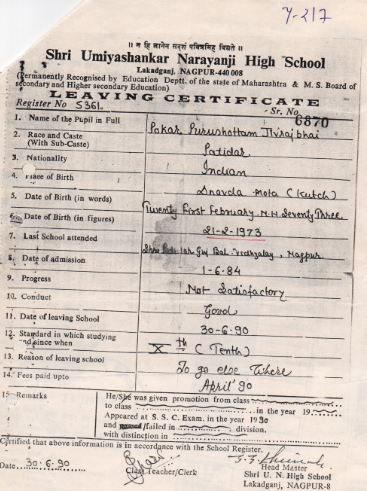 Y-217
॥ न हि ज्ञानेन सदृशं पवित्रमिह विद्यते ॥
Shri Umiyashankar Narayanji High School
Lakadganj, NAGPUR-440 008
(Permanently Recognised by Education Deptt. of the state of Maharashtra & M. S. Board of
secondary and Higher secondary Education)
LEAVING CERTIFICATE
Register No 5361. Sr. No. 6870
1. Name of the Pupil in Full Pokar Purushottam Jivrajbhai
2. Race and Caste
(With Sub-Caste) Patidar
3. Nationality Indian
4. Place of Birth Mota (Kutch)
5. Date of Birth (in words) Twenty First February N.H. Seventy Three
6. Date of Birth (in figures) 21-2-1973
7. Last School attended Nagpur
8. Date of admission 1-6-84
9. Progress Not Satisfactory
10. Conduct Good
11. Date of leaving School 30-6-90
12. Standard in which studying
and since when Xth (Tenth)
13. Reason of leaving school To go else Where
14. Fees paid upto April'90
15. Remarks He/She was given promotion from class
to class in the year 19
Appeared at S. S. C. Exam. in the year 1990
and failed in division,
with distinction in
Certified that above information is in accordance with the School Register.
Date 30-6-90 Class Teacher/Clerk Head Master
Shri U. N. High School
Lakadganj, NAGPUR-8